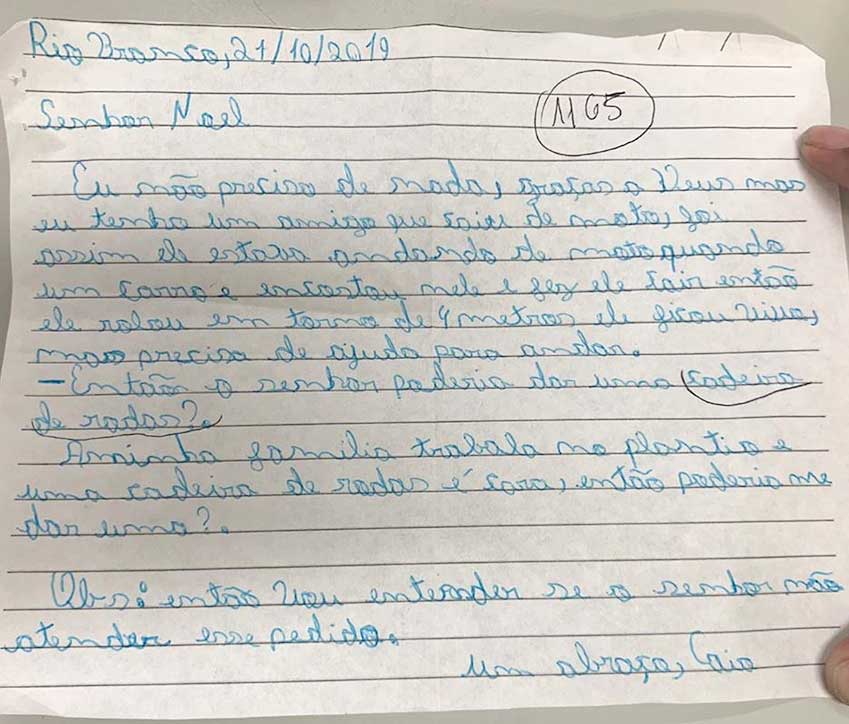 Rio Branco, 21/10/2019
Senhor Noel
1165
Eu não preciso de nada, graças a Deus mas
eu tenho um amigo que caiu de moto, foi
assim ele estava andando de moto quando
um carro e encostou nele e fez ele cair então
ele rolou em torno de 4 metros ele ficou vivo,
mas precisa de ajuda para andar.
- Então o senhor poderia dar uma cadeira
de rodas?.
Aminha familia trabala no plantio e
uma cadeira de rodas é cara, então poderia me
dar uma?.
Obs: então vou entender se o senhor não
atender esse pedido.
um abraço, Caio